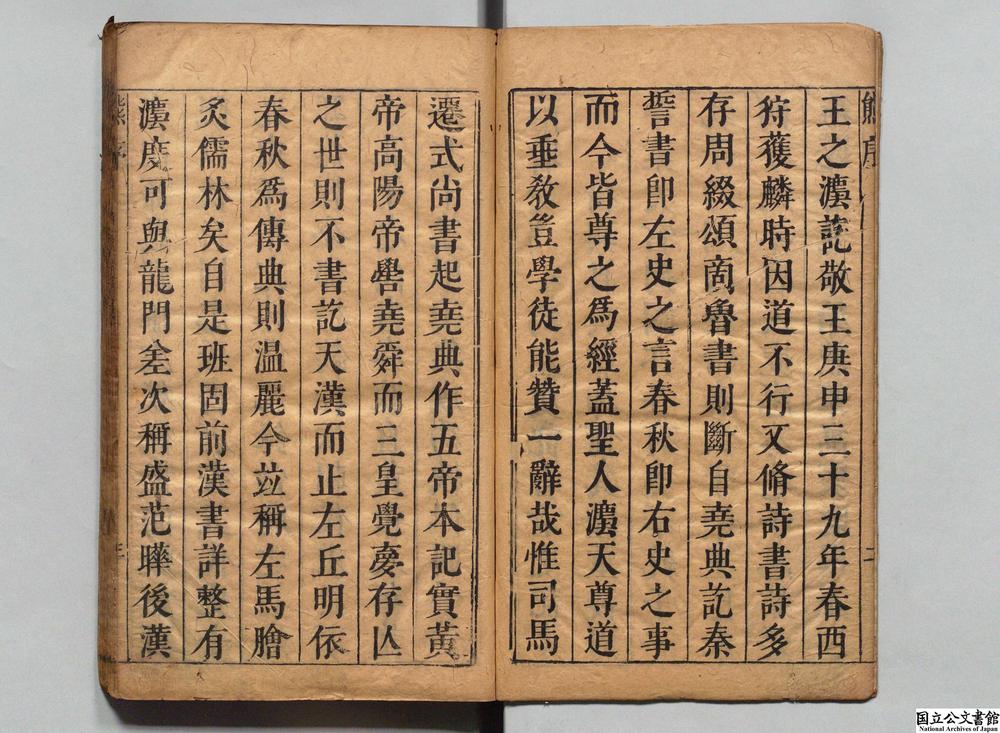 熊序
二
王之灋訖敬王庚申三十九年春西
狩獲麟時因道不行又脩詩書詩多
存周綴頌商魯書則斷自堯典訖秦
誓書卽左史之言春秋卽右史之事
而今皆尊之爲經蓋聖人灋天尊道
以垂敎豈學徒能贊一辭哉惟司馬
遷式尚書起堯典作五帝本記實黃
帝高陽帝嚳堯舜而三皇覺夣存亾
之世則不書訖天漢而止左丘明依
春秋爲傳典則温麗今竝稱左馬膾
炙儒林矣自是班固前漢書詳整有
灋度可與龍門差次稱盛范曄後漢
国立公文書館
National Archives of Japan